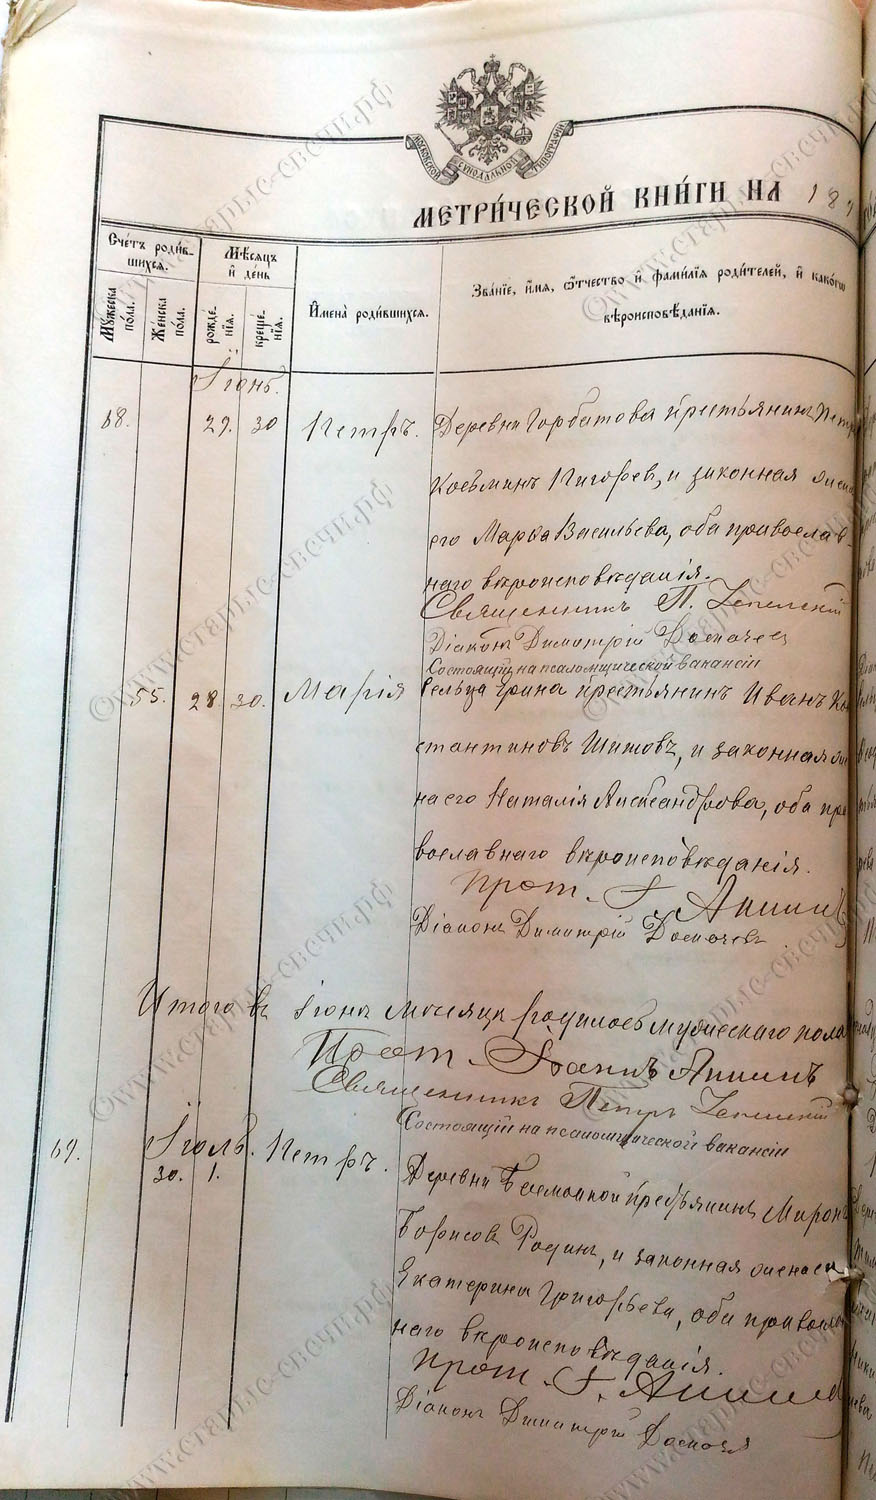 МОСКОВСКОЙ СУНОДАЛЬНОЙ ТИПОГРАФІИ
МЕТРИ́ЧЕСКОЙ КНИ́ГИ НА 18
Сче́тъ роди́в-
шихся.
Мѣ́сяцъ
и҆ де́нь
Му́жеска
по́ла.
Же́нска
по́ла.
рожде́-
нїя.
креще́-
нїя.
И҆мена̀ роди́вшихся.
Зва́нїе, и҆́мя, ѻ҆́тчество и҆ фами́лїя роди́телей, и҆ како́гѡ
вѣроисповѣ́данїя.
Іюнь.
68. 29. 30 Петръ. Деревни Горбатова крестьянинъ Петръ
Косьминъ Пигорев, и законная жена
его Марѳа Васильева, оба православ-
наго вѣроисповѣданія.
Священникъ П.
Діаконъ Димитрій
Состоящій на псаломщической вакансіи
55. 28 30. Марія Сельца крестьянинъ Иванъ Кон
стантиновъ Шитовъ, и законная же
на его Наталія Александрова, оба пра
вославнаго вѣроисповѣданія.
Прот. І.
Діаконъ Димитрій
Итого въ Іюнѣ мѣсяцѣ родилось мужескаго пола
Прот. Іоаннъ
Священникъ Петръ
Состоящій на псаломщической вакансіи
69. Іюль. Петръ.
30. 1. Деревни крестьянинъ Миронъ
Борисов Родинъ, и законная жена его
Екатерина Григорьева, оба православ
наго вѣроисповѣданія.
Прот. І.
Діаконъ Димитрій
©www.старыс-свсчи.рф